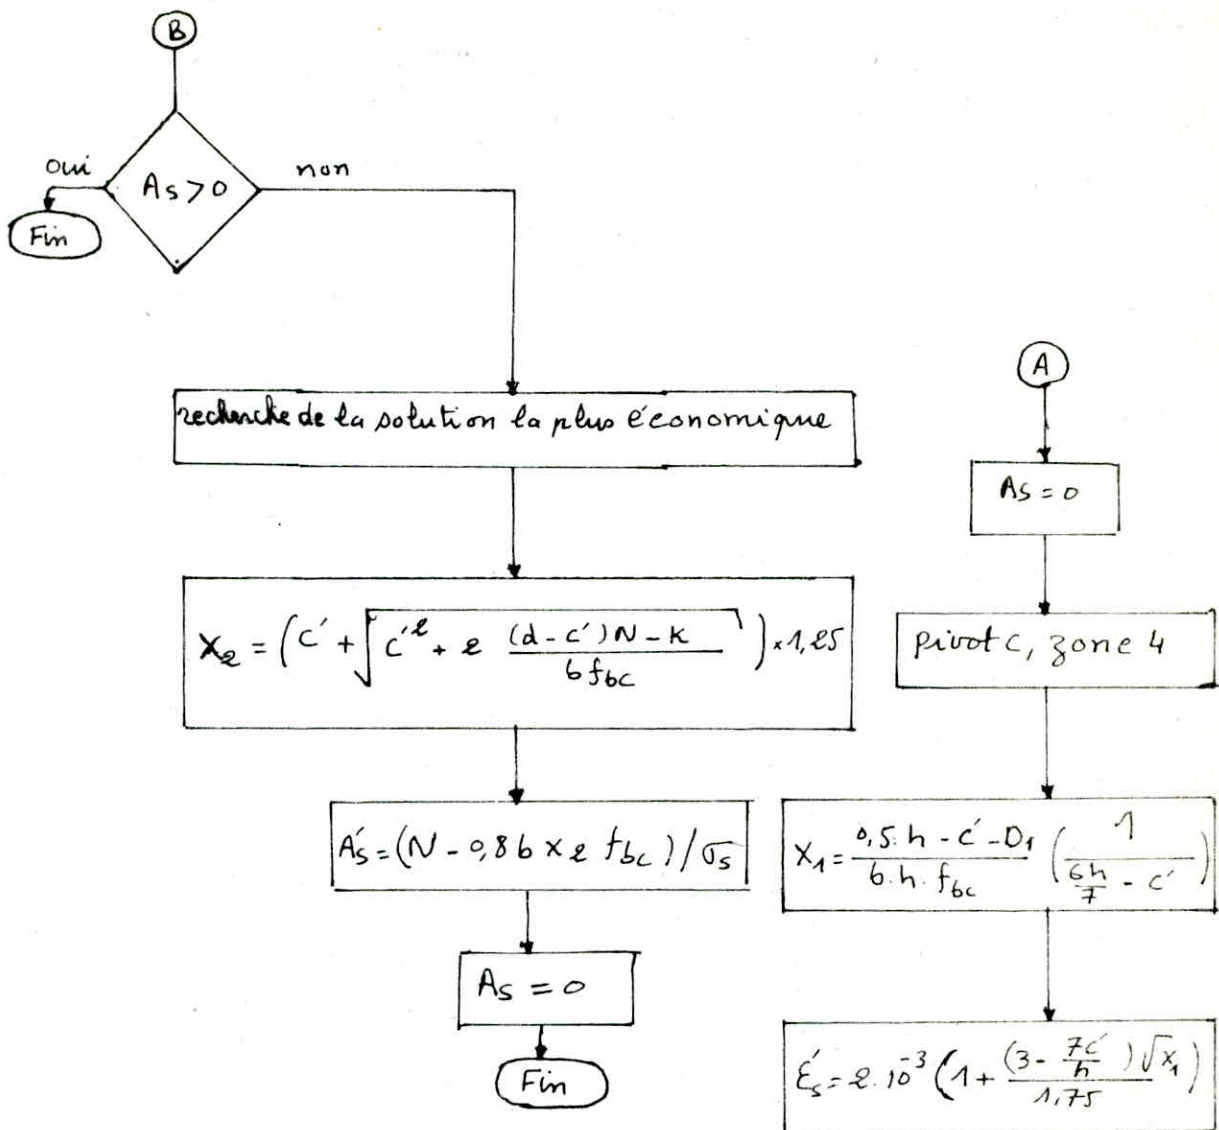 B
oui
As > 0
non
Fin
recherche de la solution la plus économique
X2 = (C' + √(C'² + 2 ((d - c')N - K) / (b fbc))) × 1,25
A's = (N - 0,8 b x 2 fbc) / σs
As = 0
Fin
A
As = 0
pivot c, zone 4
X1 = (0,5. h - c' - D1) / (b. h. fbc) (1 / (6h/7 - c'))
ε's = 2. 10⁻³ (1 + ((3 - 7c'/h) √x1) / 1,75)